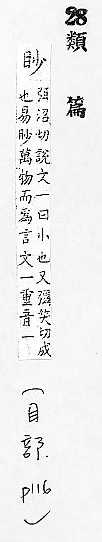 28類篇
眇 弭沼切說文一曰小也又彌笑切成
也易眇萬物而為言文一重音一
(目部. p116)